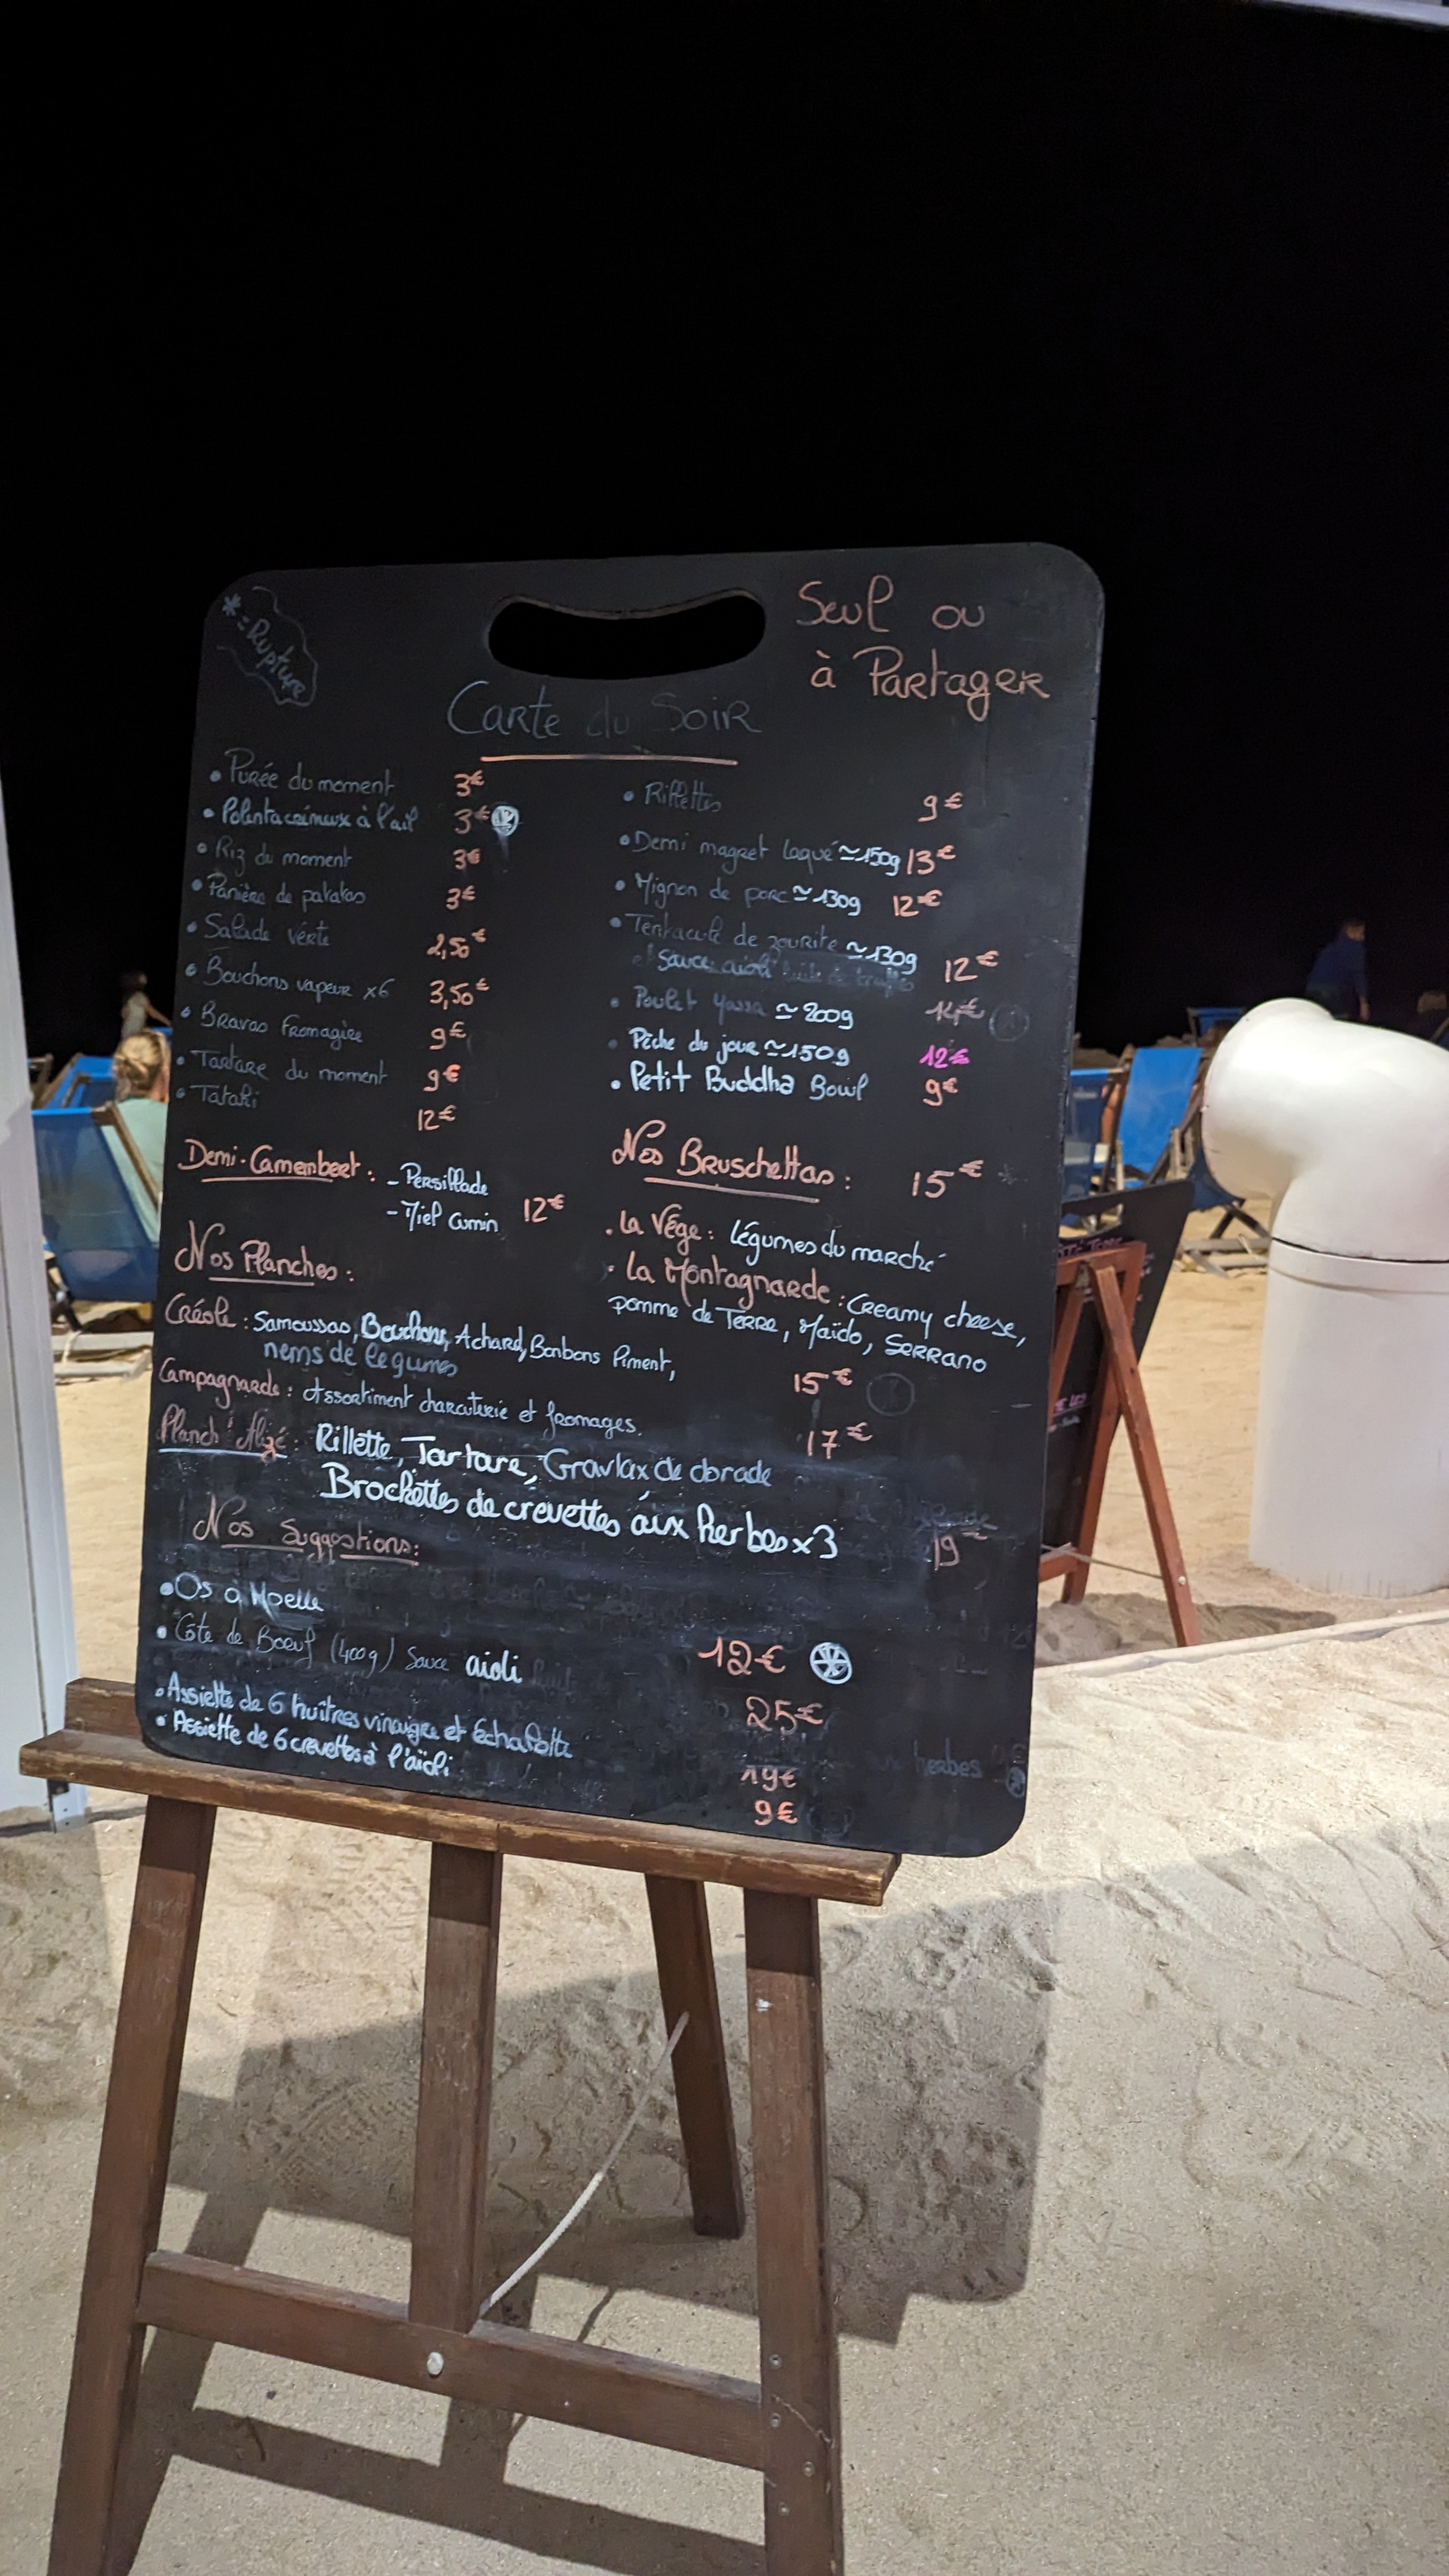 * = Rupture
Seul ou
à Partager
Carte du Soir
• Purée du moment 3€
• Polenta crémeux à l'ail 3€
• Riz du moment 3€
• Panière de patatas 3€
• Salade verte 2,50€
• Bouchons vapeur x6 3,50€
• Bravas fromagère 9€
• Tartare du moment 9€
• Tataki 12€
• Rillettes 9€
• Demi magret laqué ≃150g 13€
• Mignon de porc ≃130g 12€
• Tentacule de zourite ≃130g
et sauce aioli 12€
• Poulet Yassa ≃200g 14€
• Pêche du jour ≃150g 12€
• Petit Buddha Bowl 9€
Demi-Camembert : - Persillade
- Miel Cumin 12€
Nos Bruschettas : 15€
. La Vége : légumes du marché
. La Montagnarde : Creamy cheese,
pomme de Terre, Maïdo, Serrano
Nos Planches :
Créole : Samoussas, Bouchons, Achard, Bonbons Piment,
nems de legumes 15€
Campagnarde : Assortiment charcuterie et fromages. 17€
Planch'Alizé : Rillette, Tartare, Gravlax de dorade
Brochettes de crevettes aux herbes x3 19
Nos Suggestions :
• Os à Moelle 12€
• Côte de Boeuf (400g) Sauce aioli 25€
• Assiette de 6 huîtres vinaigre et échalotte 19€
• Assiette de 6 crevettes à l'aïoli 9€
herbes